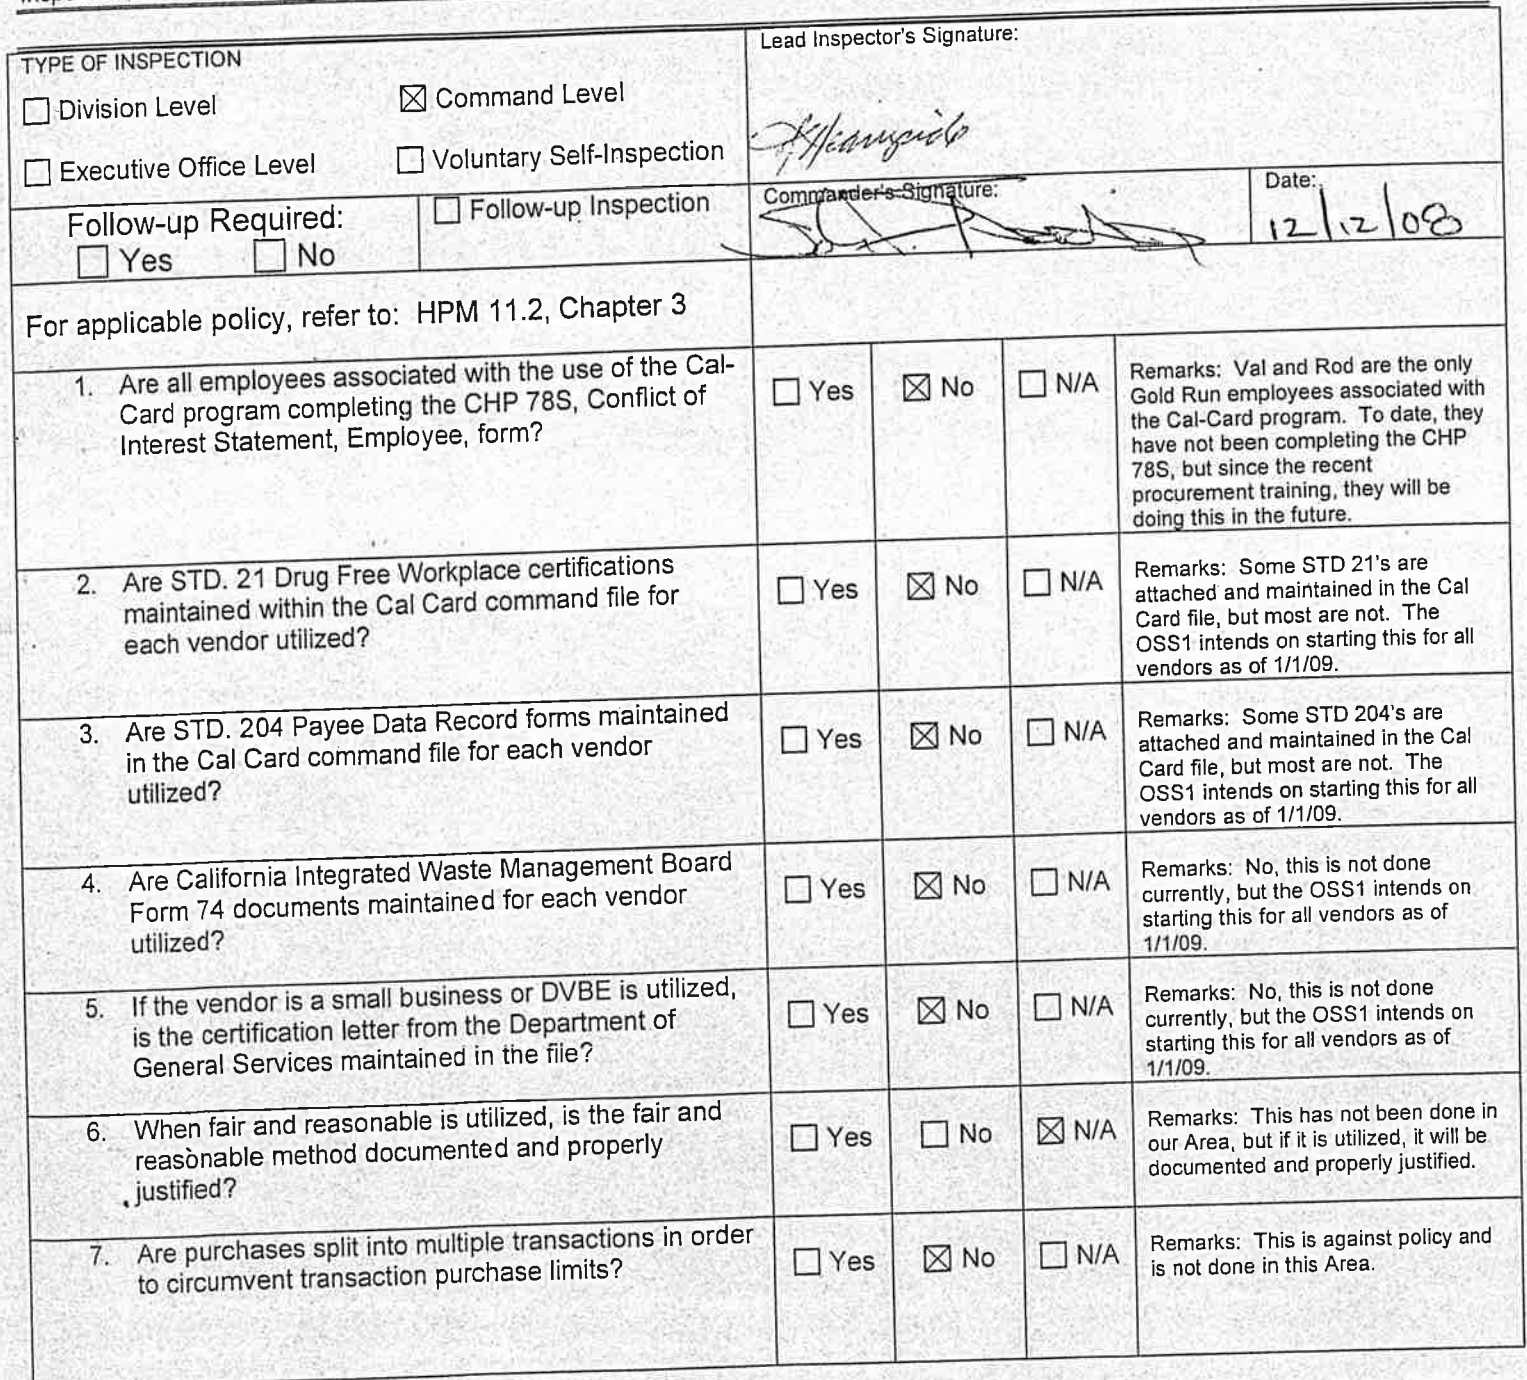 TYPE OF INSPECTION
☐ Division Level
☒ Command Level
☐ Executive Office Level
☐ Voluntary Self-Inspection
Lead Inspector's Signature:
Follow-up Required:
☐ Yes ☐ No
☐ Follow-up Inspection
Commander's Signature:
Date:
12/12/08
For applicable policy, refer to: HPM 11.2, Chapter 3
1. Are all employees associated with the use of the Cal-
Card program completing the CHP 78S, Conflict of
Interest Statement, Employee, form?
☐ Yes ☒ No ☐ N/A
Remarks: Val and Rod are the only
Gold Run employees associated with
the Cal-Card program. To date, they
have not been completing the CHP
78S, but since the recent
procurement training, they will be
doing this in the future.
2. Are STD. 21 Drug Free Workplace certifications
maintained within the Cal Card command file for
each vendor utilized?
☐ Yes ☒ No ☐ N/A
Remarks: Some STD 21's are
attached and maintained in the Cal
Card file, but most are not. The
OSS1 intends on starting this for all
vendors as of 1/1/09.
3. Are STD. 204 Payee Data Record forms maintained
in the Cal Card command file for each vendor
utilized?
☐ Yes ☒ No ☐ N/A
Remarks: Some STD 204's are
attached and maintained in the Cal
Card file, but most are not. The
OSS1 intends on starting this for all
vendors as of 1/1/09.
4. Are California Integrated Waste Management Board
Form 74 documents maintained for each vendor
utilized?
☐ Yes ☒ No ☐ N/A
Remarks: No, this is not done
currently, but the OSS1 intends on
starting this for all vendors as of
1/1/09.
5. If the vendor is a small business or DVBE is utilized,
is the certification letter from the Department of
General Services maintained in the file?
☐ Yes ☒ No ☐ N/A
Remarks: No, this is not done
currently, but the OSS1 intends on
starting this for all vendors as of
1/1/09.
6. When fair and reasonable is utilized, is the fair and
reasonable method documented and properly
justified?
☐ Yes ☐ No ☒ N/A
Remarks: This has not been done in
our Area, but if it is utilized, it will be
documented and properly justified.
7. Are purchases split into multiple transactions in order
to circumvent transaction purchase limits?
☐ Yes ☒ No ☐ N/A
Remarks: This is against policy and
is not done in this Area.